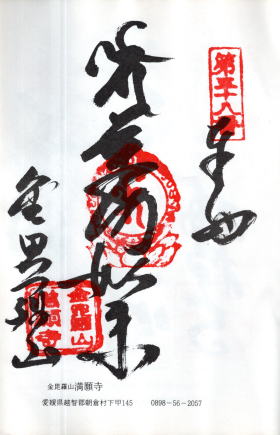 第五十八
奉納
薬師如来
金毘羅山
金毘羅山
満願寺
金毘羅山満願寺
愛媛県越智郡朝倉村下甲145 0898-56-2057